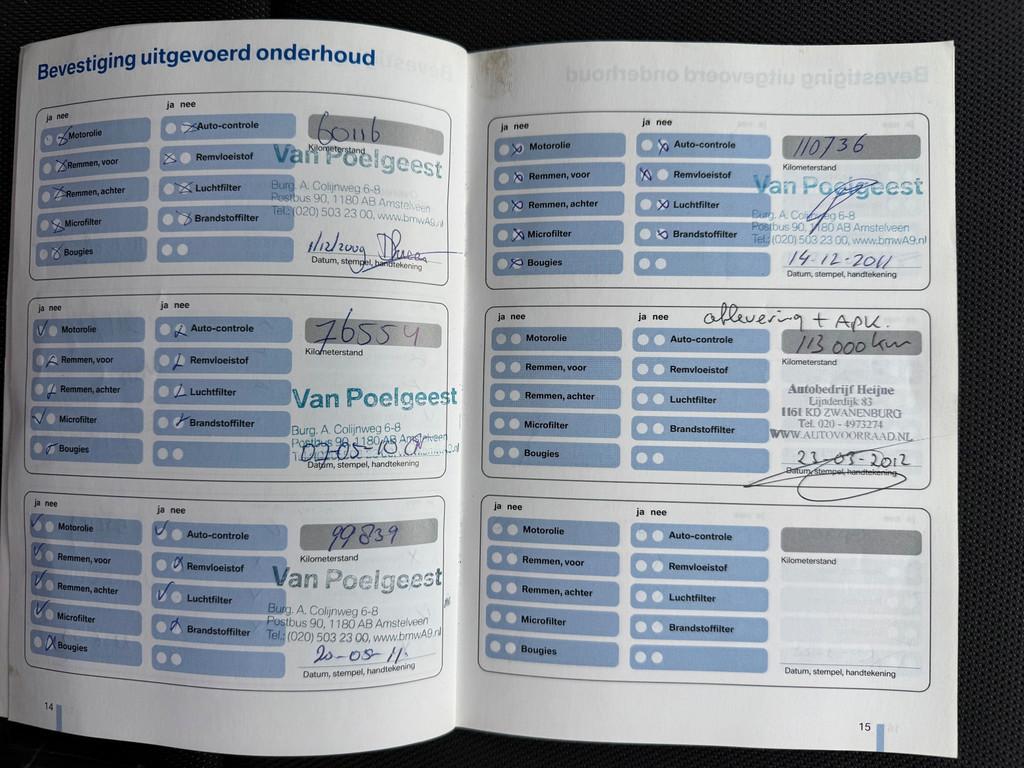 Bevestiging uitgevoerd onderhoud
ja nee
ja nee
Motorolie
Remmen, voor
Remmen, achter
Microfilter
Bougies
Auto-controle
Remvloeistof
Luchtfilter
Brandstoffilter
60116
Kilometerstand
Van Poelgeest
Burg. A. Colijnweg 6-8
Postbus 90, 1180 AB Amstelveen
Tel.: (020) 503 23 00, www.bmwA9.nl
1/12/2009
Datum, stempel, handtekening
ja nee
ja nee
Motorolie
Remmen, voor
Remmen, achter
Microfilter
Bougies
Auto-controle
Remvloeistof
Luchtfilter
Brandstoffilter
76554
Kilometerstand
Van Poelgeest
Burg. A. Colijnweg 6-8
Postbus 90, 1180 AB Amstelveen
Datum, stempel, handtekening
ja nee
ja nee
Motorolie
Remmen, voor
Remmen, achter
Microfilter
Bougies
Auto-controle
Remvloeistof
Luchtfilter
Brandstoffilter
99839
Kilometerstand
Van Poelgeest
Burg. A. Colijnweg 6-8
Postbus 90, 1180 AB Amstelveen
Tel.: (020) 503 23 00, www.bmwA9.nl
Datum, stempel, handtekening
14
ja nee
ja nee
Motorolie
Remmen, voor
Remmen, achter
Microfilter
Bougies
Auto-controle
Remvloeistof
Luchtfilter
Brandstoffilter
110736
Kilometerstand
Van Poelgeest
Burg. A. Colijnweg 6-8
Postbus 90, 1180 AB Amstelveen
Tel.: (020) 503 23 00, www.bmwA9.nl
14-12-2011
Datum, stempel, handtekening
ja nee
ja nee
Motorolie
Remmen, voor
Remmen, achter
Microfilter
Bougies
Auto-controle
Remvloeistof
Luchtfilter
Brandstoffilter
aflevering + APK.
113 000 km
Kilometerstand
Autobedrijf Heijne
Lijnderdijk 83
1161 KD ZWANENBURG
Tel. 020 - 4973274
WWW.AUTOVOORRAAD.NL
23-03-2012
Datum, stempel, handtekening
ja nee
ja nee
Motorolie
Remmen, voor
Remmen, achter
Microfilter
Bougies
Auto-controle
Remvloeistof
Luchtfilter
Brandstoffilter
Kilometerstand
Datum, stempel, handtekening
15